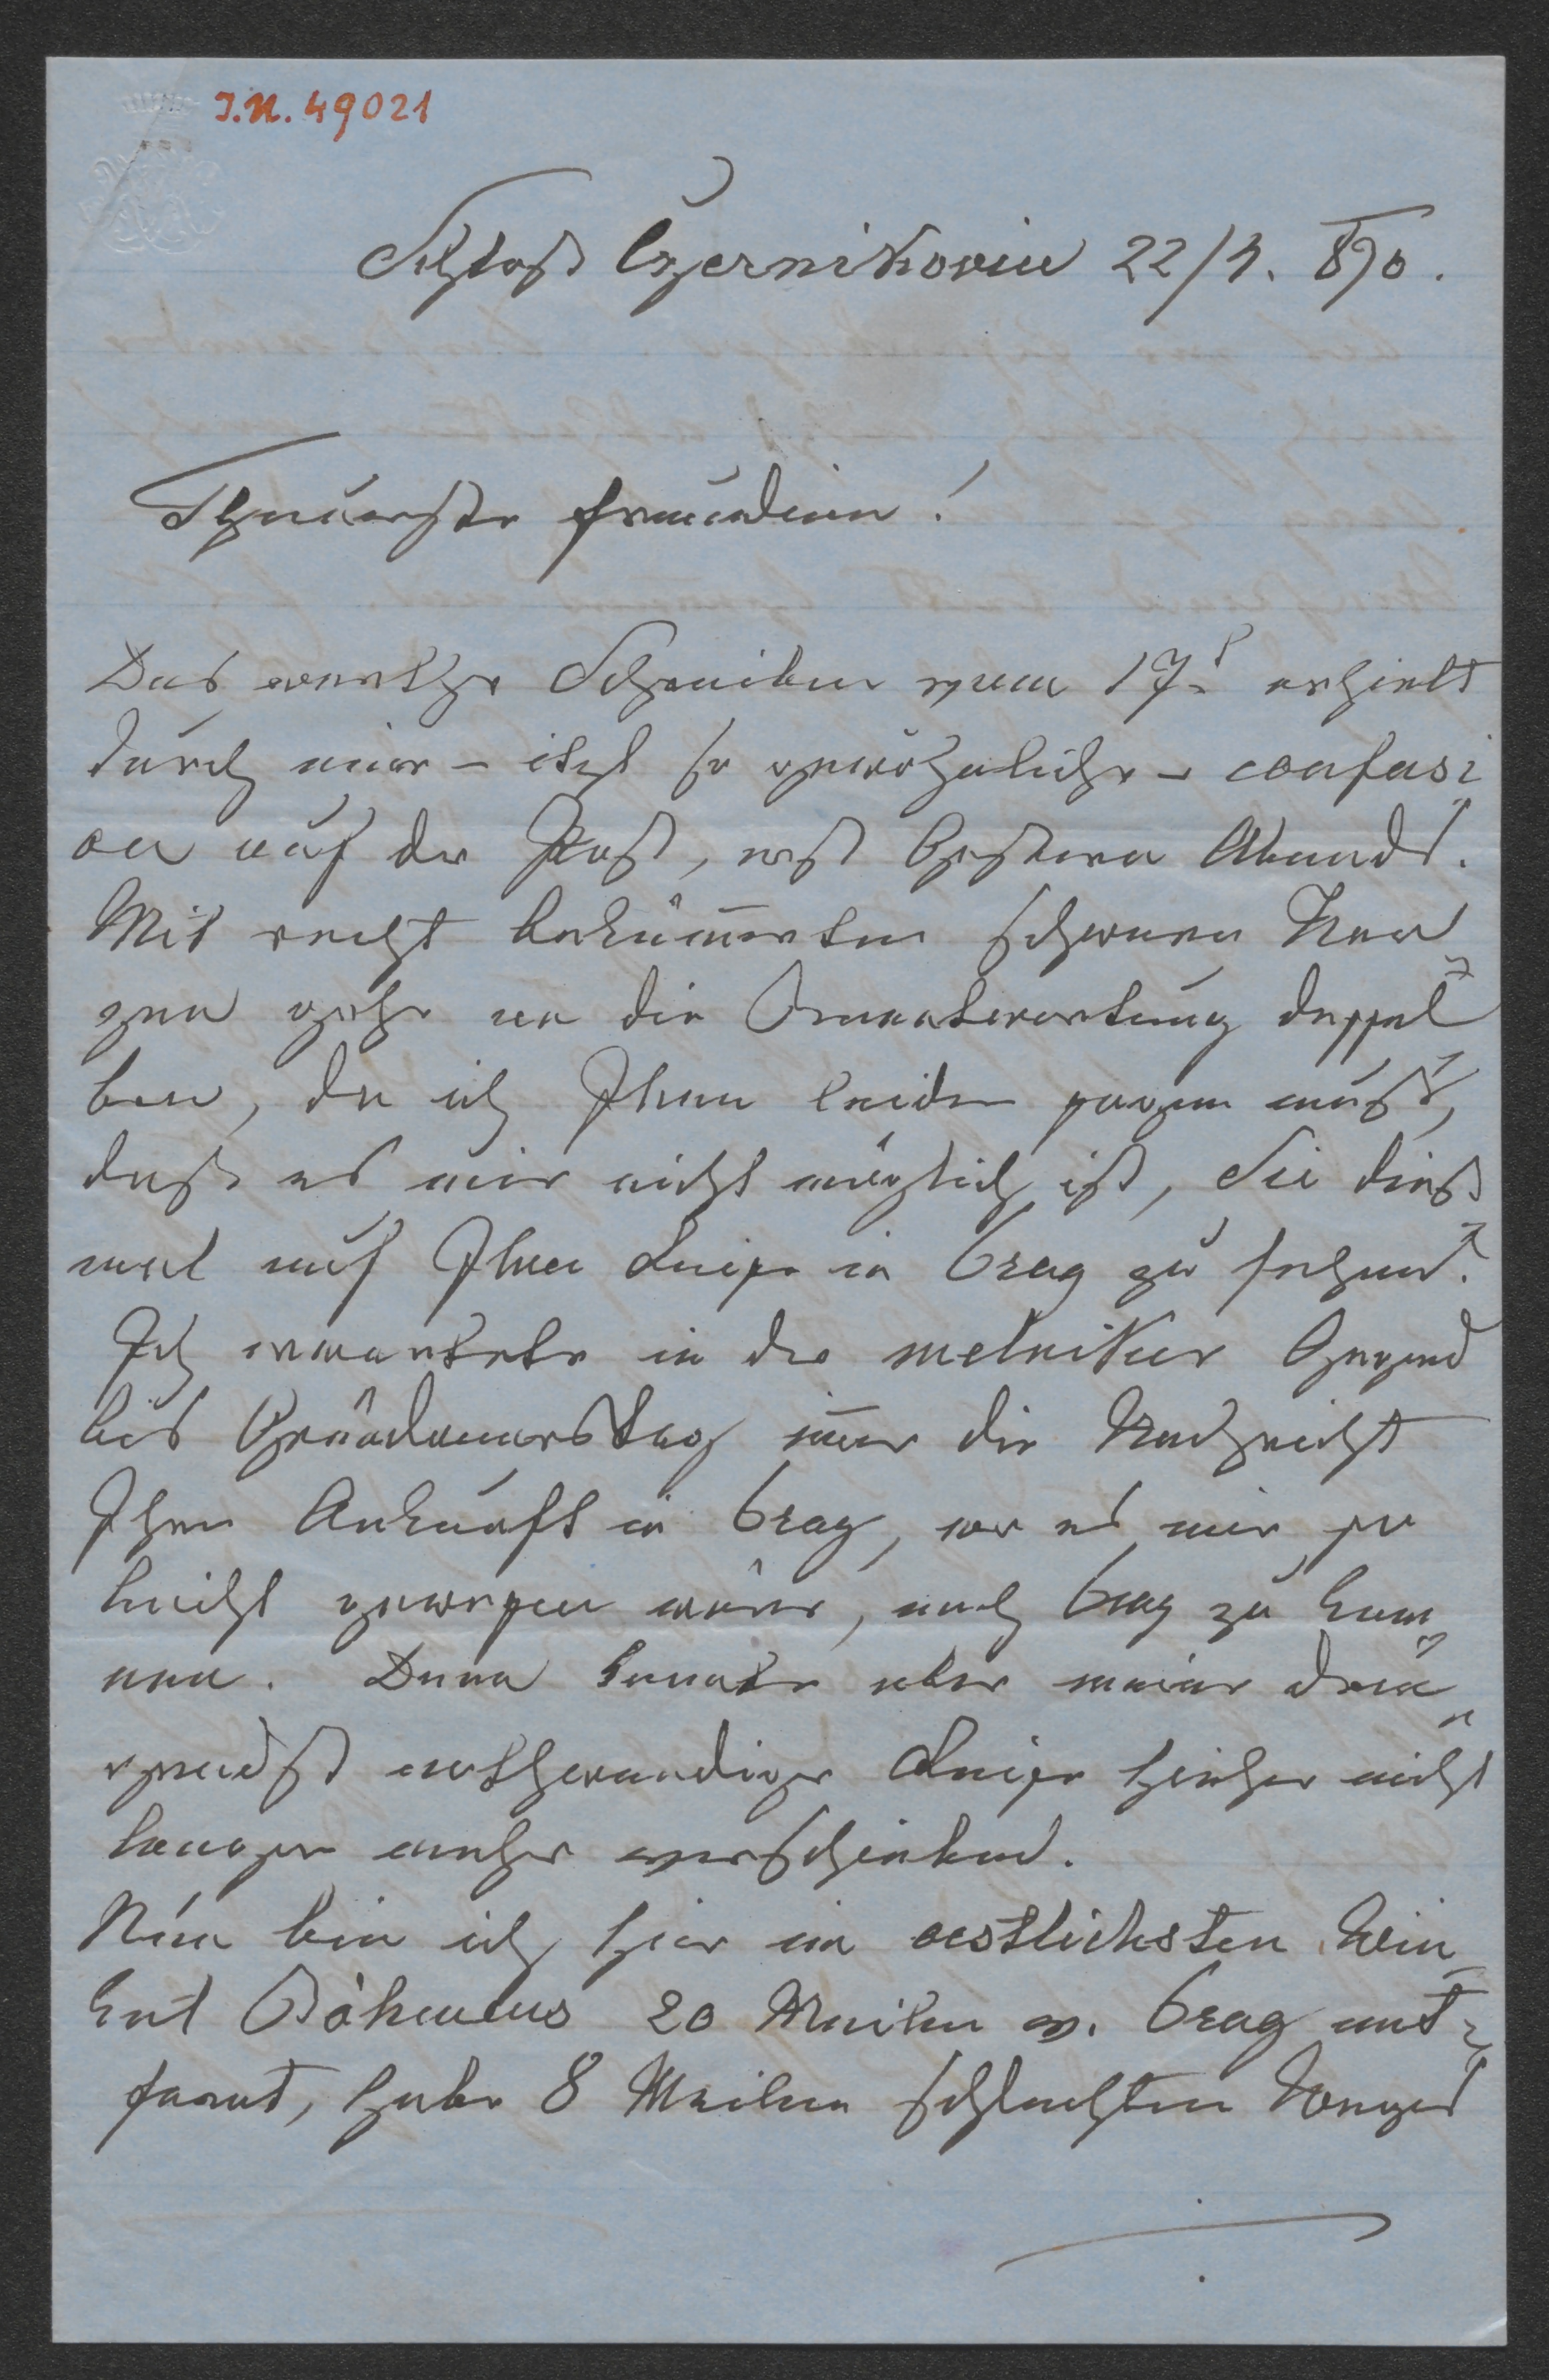 I.N. 49021
Schloß Czernikovic 22/4. 870.
Theuerste Freundinn!
Das werthe Schreiben vom 17t erhielt
durch eine – itzt so gewöhnliche – confusi
on auf der Post, erst Gestern Abends.
Mit recht bekümmertem schweren Her
zen gehe an die Beantwortung dessel
ben, da ich Ihnen leider sagen muß,
daß es mir nicht möglich ist, Sie dieß
mal auf Ihrer Reise in Prag zu sehen.
Ich erwartete in der melniker Gegend
bis Gründonnerstag immer die Nachricht
Ihrer Ankunft in Prag, wo es mir so
leicht gewesen wäre, nach Prag zu kom
men. Dann konnte aber meine drin
gendst nothwendige Reise hieher nicht
länger mehr verschieben.
Nun bin ich hier im oestlichsten Win
kel Böhmens 20 Meilen v. Prag ent
fernt, habe 8 Meilen schlechten Weges